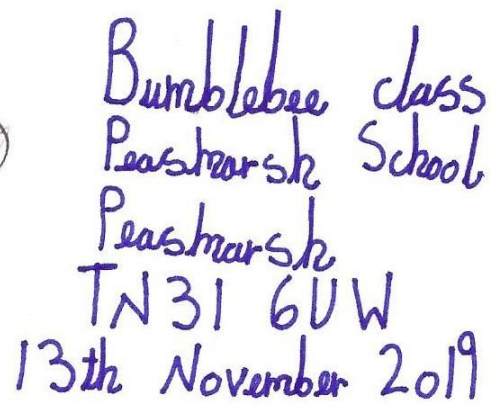 Bumblebee class
Peasmarsh School
Peasmarsh
TN31 6UW
13th November 2019